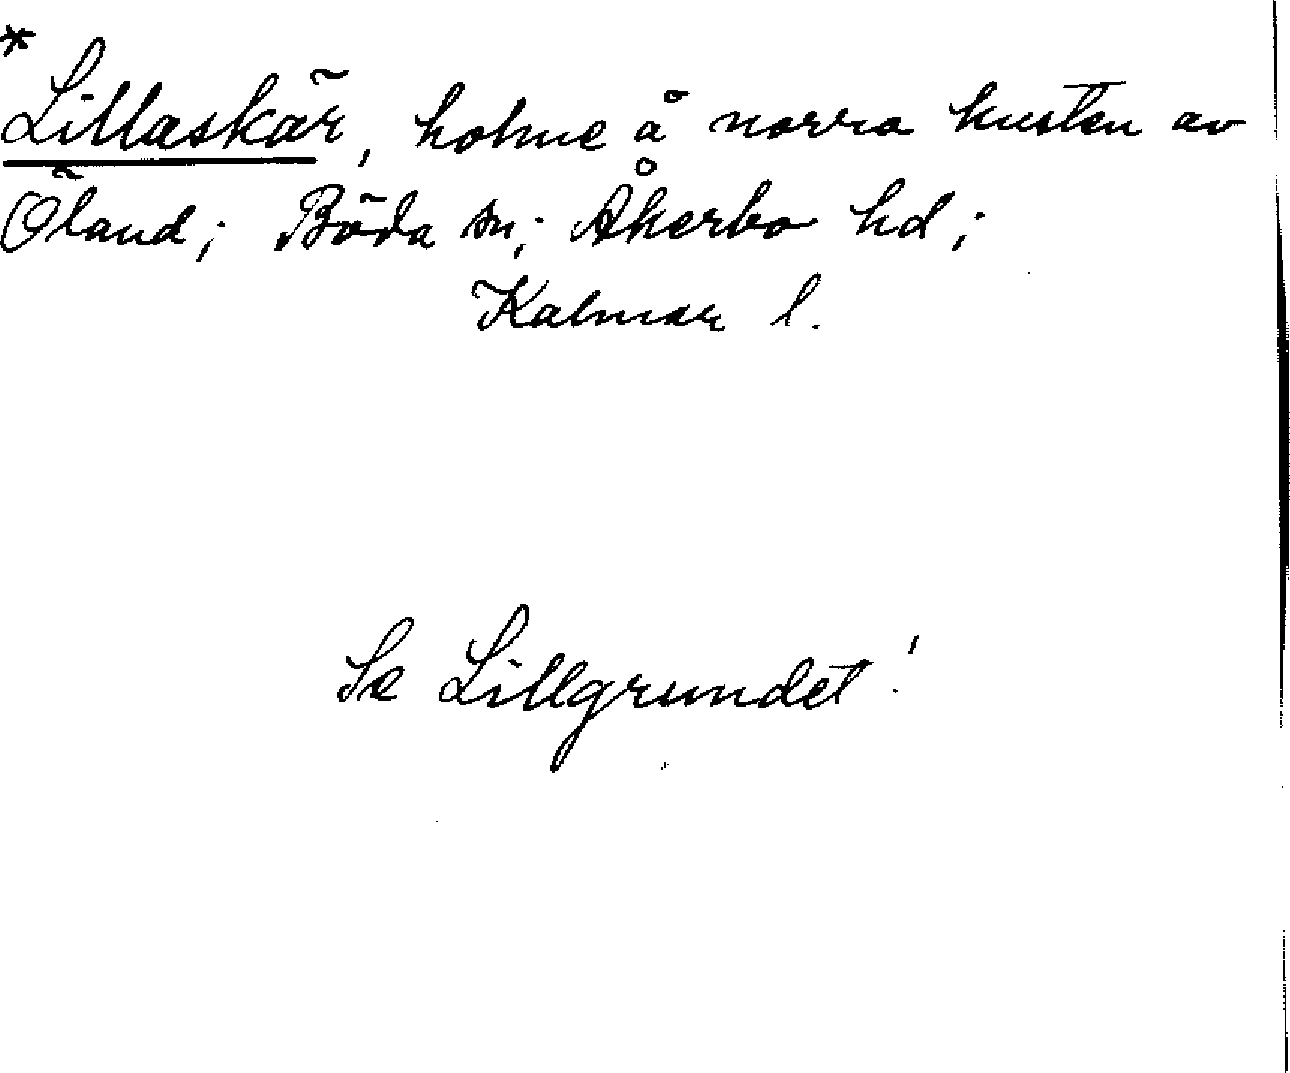 *
Lillaskär, holme å norra kusten av
Öland; Böda sn; Åkerbo hd;
Kalmar l.
Se Lillgrundet!